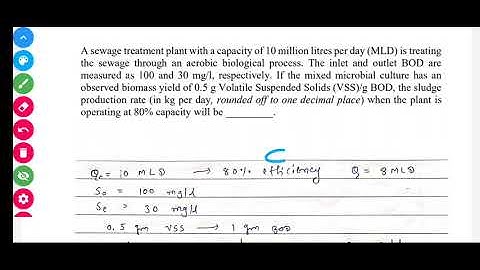 A sewage treatment plant with a capacity of 10 million litres per day (MLD) is treating
the sewage through an aerobic biological process. The inlet and outlet BOD are
measured as 100 and 30 mg/l, respectively. If the mixed microbial culture has an
observed biomass yield of 0.5 g Volatile Suspended Solids (VSS)/g BOD, the sludge
production rate (in kg per day, rounded off to one decimal place) when the plant is
operating at 80% capacity will be ________.
Qc = 10 MLD → 80% efficiency Q = 8 MLD
So = 100 mg/l
Se = 30 mg/l
0.5 gm VSS → 1 gm BOD